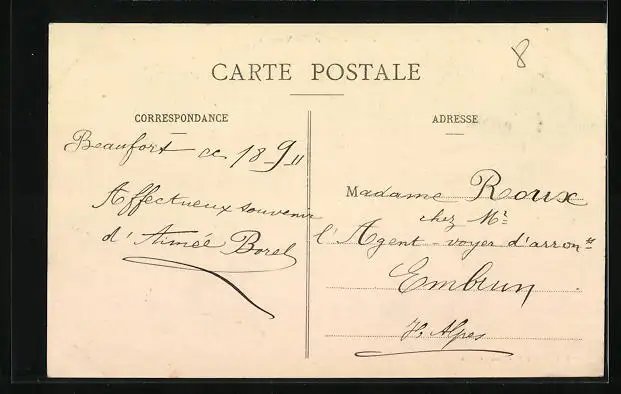 8
CARTE POSTALE
CORRESPONDANCE
Beaufort ce 18-9-11
Affectueux souvenir
d'Aimée Borel
ADRESSE
Madame Roux
chez Mr
l'Agent-voyer d'arront
Embrun
H. Alpes